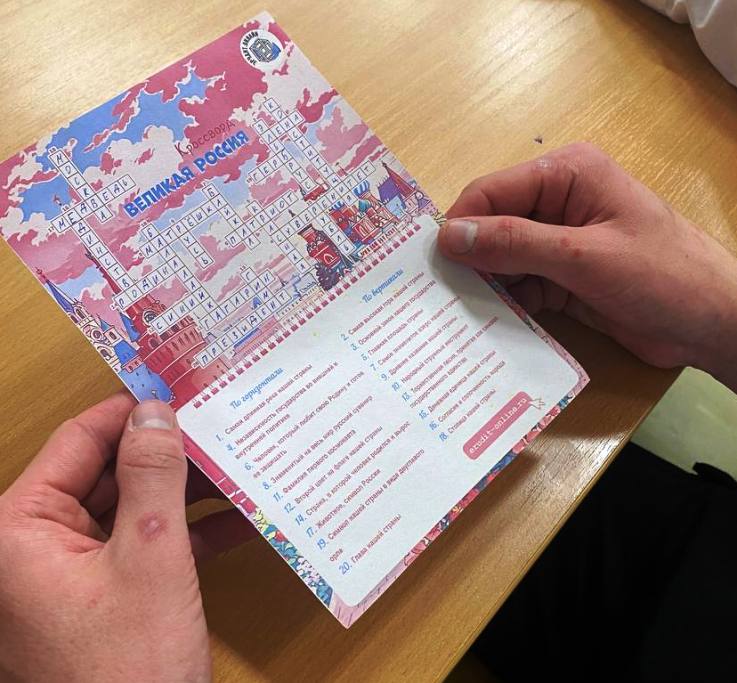 ЭРУДИТ-ОНЛАЙН
Кроссворд
ВЕЛИКАЯ РОССИЯ
МОСКВА
МЕДВЕДЬ
ЕДИНСТВО
РОДИНА
СИНИЙ
МАТРЕШКА
ПАТРИОТ
ГАГАРИН
ПРЕЗИДЕНТ
ГЕРБ
ЛЕНА
СУВЕРЕНИТЕТ
По горизонтали
1. Самая длинная река нашей страны
4. Независимость государства во внешней и
внутренней политике
6. Человек, который любит свою Родину и готов
ее защищать
8. Знаменитый на весь мир русский сувенир
11. Фамилия первого космонавта
12. Второй цвет на флаге нашей страны
14. Страна, в которой человек родился и вырос
17. Животное, символ России
19. Символ нашей страны в виде двуглавого
орла
20. Глава нашей страны
По вертикали
2. Самая высокая гора нашей страны
3. Основной закон нашего государства
5. Главная площадь страны
7. Самое знаменитое озеро нашей страны
9. Древнее название нашей страны
10. Народный струнный инструмент
13. Торжественная песня, принятая как символ
государственного единства
15. Денежная единица нашей страны
16. Согласие и сплоченность народа
18. Столица нашей страны
erudit-online.ru